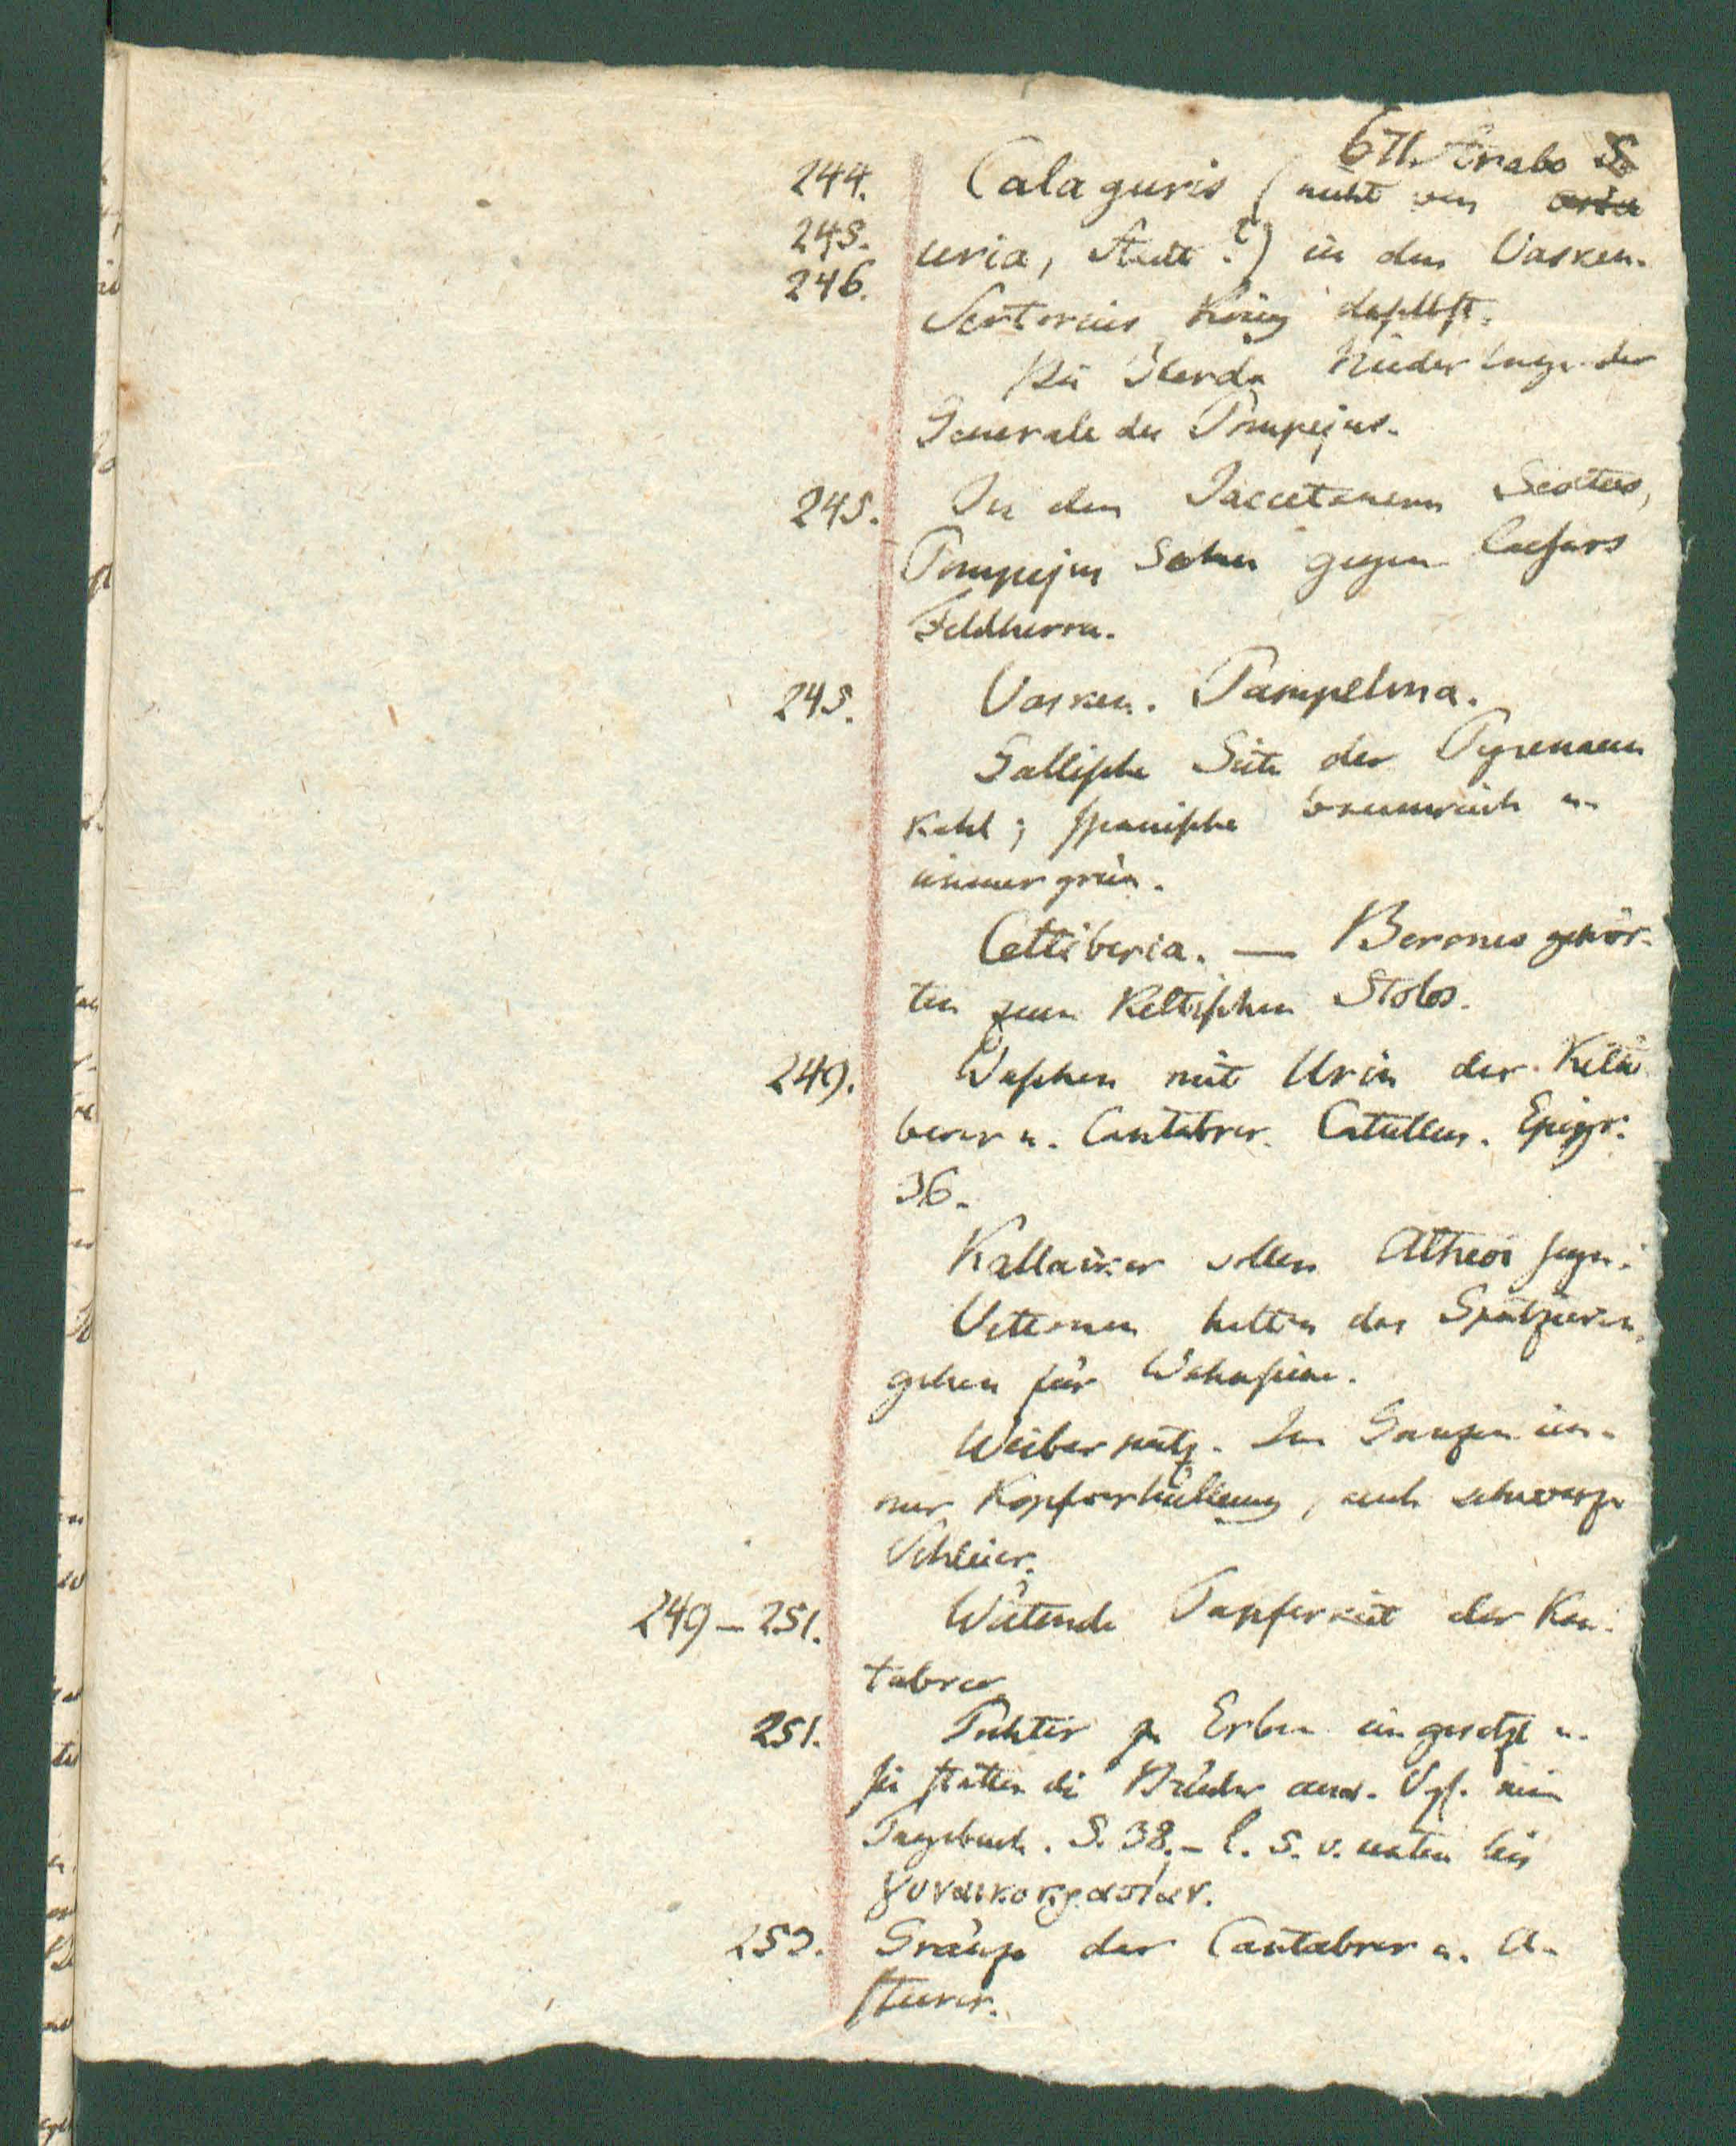 671. Strabo 5
244. Calaguris (nicht von
245. uria, Stadt?) in den Vasken.
246. Sertorius Krieg daselbst.
Bei Ilerda Niederlage der
Generale des Pompejus.
245. In den Jaccetanern Sextus,
Pompejus Sohn gegen Caesars
Feldherrn.
245. Vasken. Pampelona.
Gallische Seite der Pyrenaeen
kahl; spanische baumreich u.
immergrün.
Celtiberia. — Berones gehör-
ten zum Keltischen Stolos.
249. Waschen mit Urin der Kelti
berer u. Cantabrer. Catullus. Epigr.
36.
Kallaiker sollen Atheoi seyn.
Vettonen hatten das Spatzieren-
gehen für Wahnsinn.
Weiberputz. Im Ganzen im-
mer Kopfverhüllung, auch schwarze
Schleier.
249 – 251. Wütende Tapferkeit der Kan-
tabrer
251. Töchter zu Erben eingesetzt u.
sie statten die Brüder aus. Vgl. mein
Tagebuch. S. 38. – l. 5. v. unten bis
253. Gränze der Cantabrer u. A-
sturer.